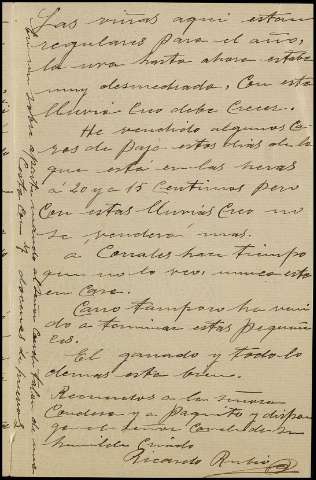 Las viñas aqui estan
regulares para el año,
la uva hasta ahora estaba
muy desmedrada, Con esta
lluvia Creo debe Crecer.
He vendido algunos Ca
rros de paja estos dias de la
que está en las heras
á 20 y a 15 Centimos pero
Con estas lluvias Creo no
se venderá mas.
a Corrales hace tiempo
que no lo veo, nunca esta
en Casa.
Cano tampoco ha veni
do a terminar estas pequeñe
ces.
El ganado y todo lo
demas esta bien.
Recuerdos a la señora
Condesa y a Paquito y dispon
ga el señor Conde de su
humilde Criado
Ricardo Rubio
En un sobre aparte mando al señor Conde talon de una
Cesta con docenas de